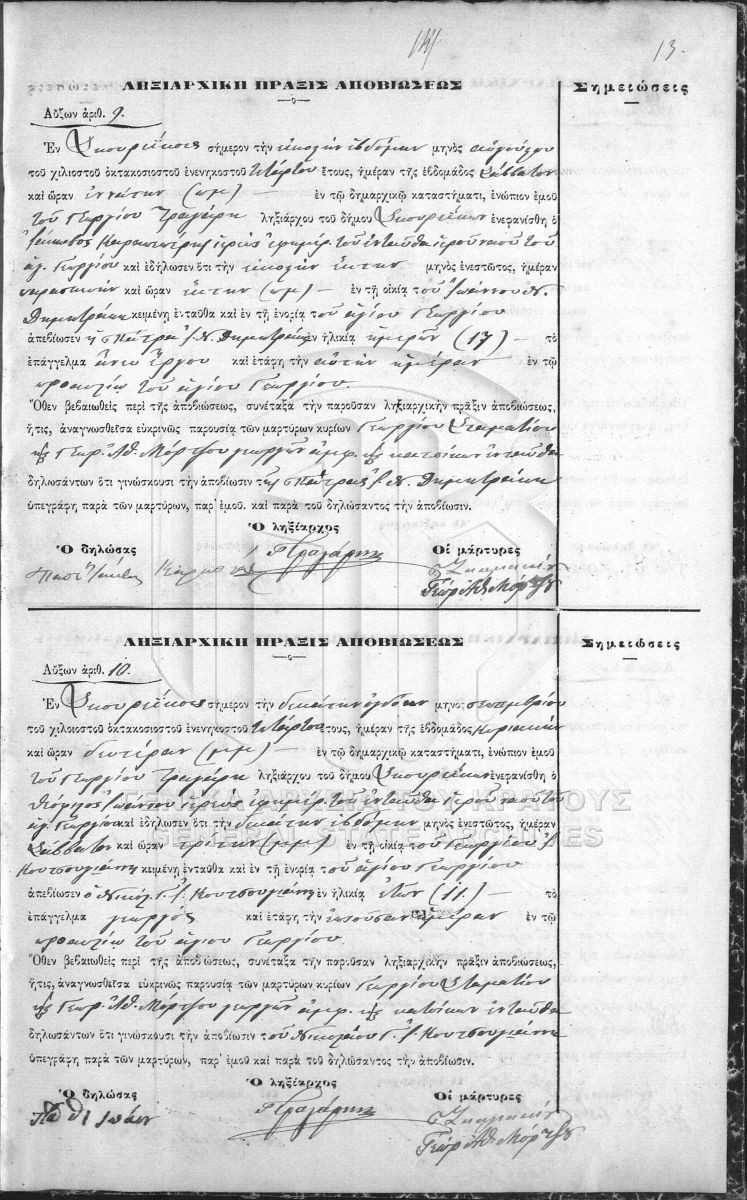 13.
ΛΗΞΙΑΡΧΙΚΗ ΠΡΑΞΙΣ ΑΠΟΒΙΩΣΕΩΣ
Σημειώσεις
Αὔξων ἀριθ. 9.
Ἐν Σκουριέκοις σήμερον τὴν εἰκοστὴν ἑβδόμην μηνὸς αὐγούστου
τοῦ χιλιοστοῦ ὀκτακοσιοστοῦ ἐνενηκοστοῦ τετάρτου ἔτους, ἡμέραν τῆς ἑβδομάδος Σάββατον
καὶ ὥραν ἐννάτην (πμ) — ἐν τῷ δημαρχικῷ καταστήματι, ἐνώπιον ἐμοῦ
τοῦ Γεωργίου Τραγάρη ληξιάρχου τοῦ δήμου Σκουριέκων ἐνεφανίσθη ὁ
Ἰάκωβος ἱερεὺς ἐφημέρ. τοῦ ἐνταῦθα ἱεροῦ ναοῦ τοῦ
ἁγ. Γεωργίου καὶ ἐδήλωσεν ὅτι τὴν εἰκοστὴν ἕκτην μηνὸς ἐνεστῶτος, ἡμέραν
παρασκευὴν καὶ ὥραν ἕκτην (πμ) — ἐν τῇ οἰκίᾳ τοῦ Ἰωάννου Ν.
Δημητράκη κειμένῃ ἐνταῦθα καὶ ἐν τῇ ἐνορίᾳ τοῦ ἁγίου Γεωργίου
ἀπεβίωσεν ἡ Ι. Ν. Δημητράκη ἐν ἡλικίᾳ ἡμερῶν (17) — τὸ
ἐπάγγελμα ἄνευ ἔργου καὶ ἐτάφη τὴν αὐτὴν ἡμέραν ἐν τῷ
προαυλίῳ τοῦ ἁγίου Γεωργίου.
Ὅθεν βεβαιωθεὶς περὶ τῆς ἀποβιώσεως, συνέταξα τὴν παροῦσαν ληξιαρχικὴν πρᾶξιν ἀποβιώσεως,
ἥτις, ἀναγνωσθεῖσα εὐκρινῶς παρουσίᾳ τῶν μαρτύρων κυρίων Γεωργίου Σταματίου
καὶ Γεωρ. Ἀθ. Μόρτζου γεωργῶν ἀμφ. καὶ κατοίκων ἐνταῦθα
δηλωσάντων ὅτι γινώσκουσι τὴν ἀποβίωσιν τῆς Ι. Ν. Δημητράκη
ὑπεγράφη παρὰ τῶν μαρτύρων, παρ' ἐμοῦ. καὶ παρὰ τοῦ δηλώσαντος τὴν ἀποβίωσιν.
Ὁ ληξίαρχος
Ὁ δηλώσας
Οἱ μάρτυρες
Γ Τραγάρης
Γεώρ. Αθ. Μόρτζου
ΛΗΞΙΑΡΧΙΚΗ ΠΡΑΞΙΣ ΑΠΟΒΙΩΣΕΩΣ
Σημειώσεις
Αὔξων ἀριθ. 10.
Ἐν Σκουριέκοις σήμερον τὴν δεκάτην ὀγδόην μηνὸς σεπτεμβρίου
τοῦ χιλιοστοῦ ὀκτακοσιοστοῦ ἐνενηκοστοῦ τετάρτου ἔτους, ἡμέραν τῆς ἑβδομάδος Κυριακὴν
καὶ ὥραν δευτέραν (μμ) — ἐν τῷ δημαρχικῷ καταστήματι, ἐνώπιον ἐμοῦ
τοῦ Γεωργίου Τραγάρη ληξιάρχου τοῦ δήμου Σκουριέκων ἐνεφανίσθη ὁ
Ἰωάννου ἱερεὺς ἐφημέρ. τοῦ ἐνταῦθα ἱεροῦ ναοῦ τοῦ
ἁγ. Γεωργίου καὶ ἐδήλωσεν ὅτι τὴν δεκάτην ἑβδόμην μηνὸς ἐνεστῶτος, ἡμέραν
Σάββατον καὶ ὥραν τρίτην (μμ) — ἐν τῇ οἰκίᾳ τοῦ Γεωργίου Ι.
Κουτσουγιάννη κειμένῃ ἐνταῦθα καὶ ἐν τῇ ἐνορίᾳ τοῦ ἁγίου Γεωργίου
ἀπεβίωσεν ὁ Νικόλ. Γ. Ι. Κουτσουγιάννη ἐν ἡλικίᾳ ἐτῶν (11) — τὸ
ἐπάγγελμα γεωργὸς καὶ ἐτάφη τὴν ἐπιοῦσαν ἡμέραν ἐν τῷ
προαυλίῳ τοῦ ἁγίου Γεωργίου.
Ὅθεν βεβαιωθεὶς περὶ τῆς ἀποβιώσεως, συνέταξα τὴν παροῦσαν ληξιαρχικὴν πρᾶξιν ἀποβιώσεως,
ἥτις, ἀναγνωσθεῖσα εὐκρινῶς παρουσίᾳ τῶν μαρτύρων κυρίων Γεωργίου Σταματίου
καὶ Γεωρ. Ἀθ. Μόρτζου γεωργῶν ἀμφ. καὶ κατοίκων ἐνταῦθα
δηλωσάντων ὅτι γινώσκουσι τὴν ἀποβίωσιν τοῦ Νικολάου Γ. Ι. Κουτσουγιάννη
ὑπεγράφη παρὰ τῶν μαρτύρων, παρ' ἐμοῦ καὶ παρὰ τοῦ δηλώσαντος τὴν ἀποβίωσιν.
Ὁ ληξίαρχος
Ὁ δηλώσας
Οἱ μάρτυρες
Γ Τραγάρης
Γεώρ. Αθ. Μόρτζου
ΓΕΝΙΚΑ ΑΡΧΕΙΑ ΤΟΥ ΚΡΑΤΟΥΣ
GENERAL STATE ARCHIVES